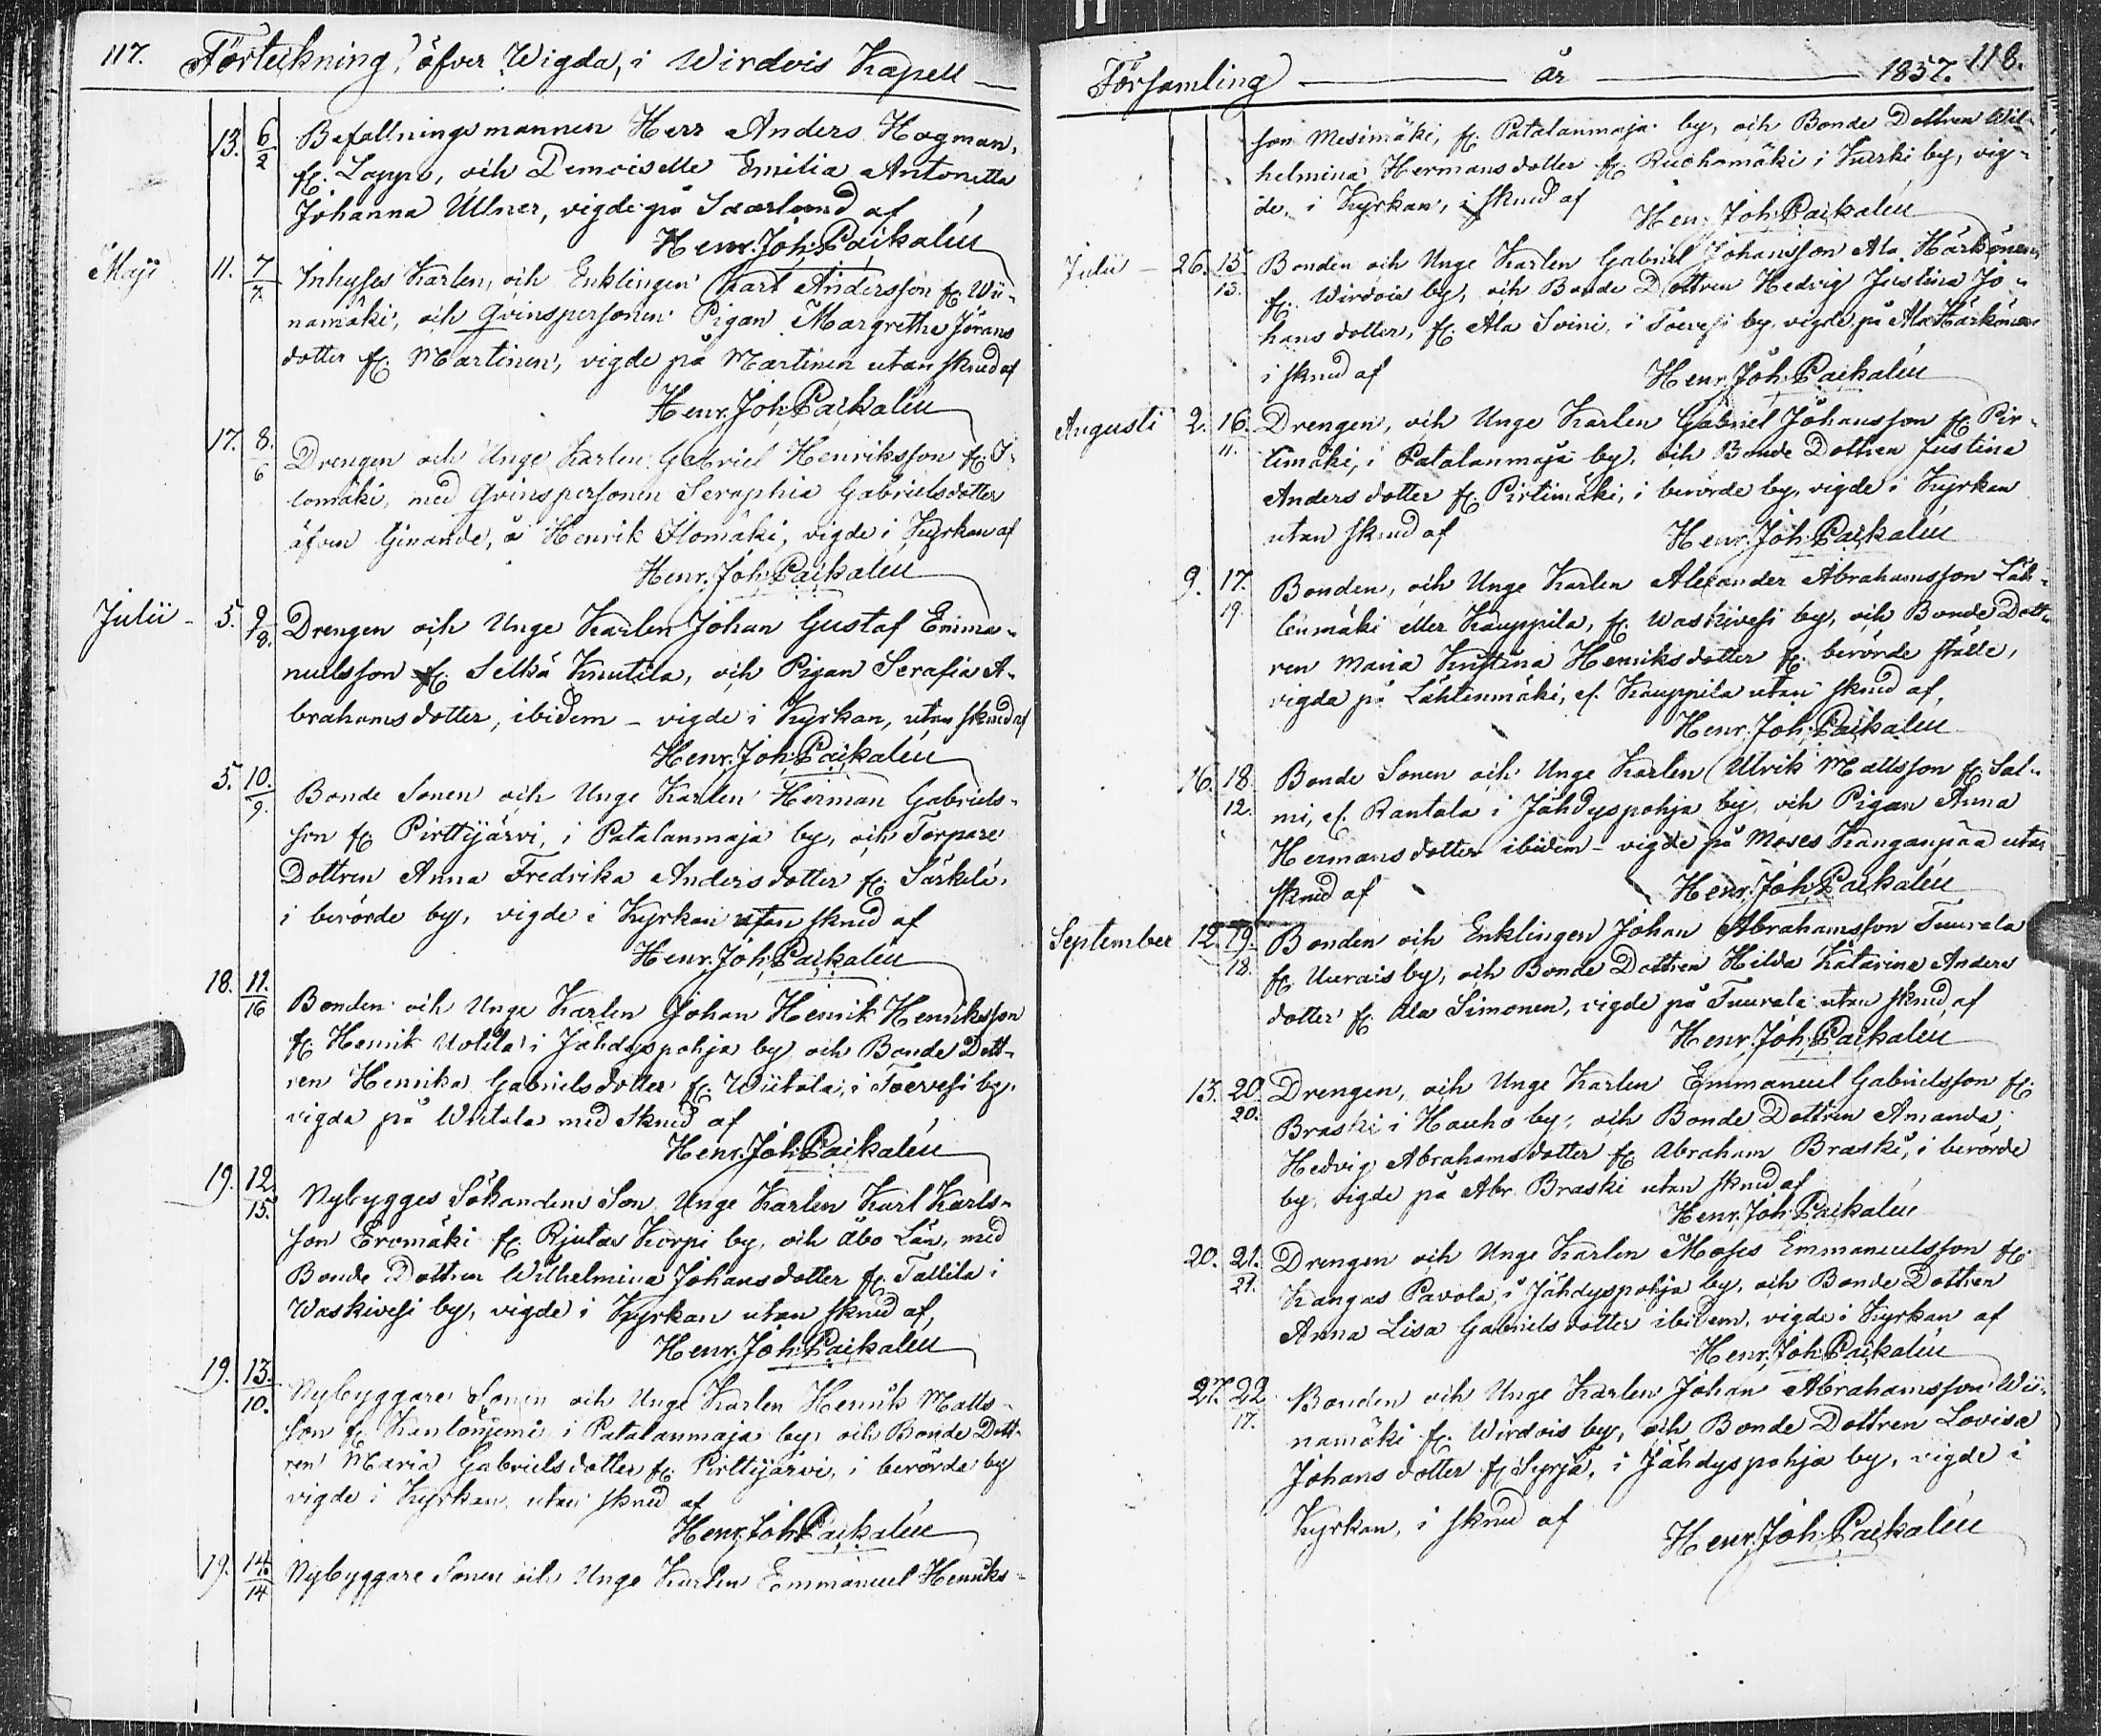 117. Förteckning, öfver Wigda, i Wirdois Kapell
13. 6/2 Befallningsmannen Herr Anders Hagman,
fr. Lappo, och Demoiselle Emilia Antonetta
Johanna Ullner, vigde på Saarlund af
Henr. Joh. Paikalén
Maji 11. 7/7. Inhyses Karlen, och Enklingen Karl Andersson fr. Wii-
namäki, och Qvinspersonen Pigan Margretha Jörans
dotter fr. Martinen, vigde på Martinen utan skrud af
Henr. Joh. Paikalén
17. 8./6 Drengen och Unge Karlen Gabriel Henriksson fr. I-
lomäki, med Qvinspersonen Seraphia Gabrielsdotter
äfven tjenande, å Henrik Ilomäki, vigde i Kyrkan af
Henr. Joh. Paikalén
Julii - 5. 9/8. Drengen och Unge Karlen Johan Gustaf Emma-
nuelsson fr. Selkä Knutila, och Pigan Serafia A-
brahamsdotter, ibidem - vigde i Kyrkan, utan skrud af
Henr. Joh. Paikalén
5. 10./9. Bonde Sonen och Unge Karlen Herman Gabriels-
son fr. Pirttijärvi, i Patalanmaja by, och Torpare
Dottren Anna Fredrika Andersdotter fr. Särkelä,
i berörde by, vigde i Kyrkan utan skrud af
Henr. Joh. Paikalén
18. 11./16 Bonden och Unge Karlen Johan Henrik Henriksson
fr. Henrik Uotila i Jähdyspohja by och Bonde Dott-
ren Henrika Gabrielsdotter fr. Wiitala, i Toevesi by,
vigda på Wiitala med skrud af
Henr. Joh. Paikalén
19. 12./15. Nybygges Sökandens Son Unge Karlen Karl Karls-
son Eromäki fr. Rjutas Korpi by, och Åbo Län, med
Bonde Dottren Wilhelmina Johansdotter fr. Tallila i
Waskivesi by, vigde i Kyrkan utan skrud af,
Henr. Joh. Paikalén
19. 13./10. Nybyggare Sonen och Unge Karlen Henrik Matts-
son fr. Kantoniemi i Patalanmaja by, och Bonde Dott-
ren Maria Gabrielsdotter fr. Pirttijärvi, i berörde by
vigde i Kyrkan utan skrud af
Henr. Joh. Paikalén
19. 14./14 Nybyggare Sonen och Unge Karlen Emmanuel Henriks-
Församling år 1857. 118.
son Mesimäki, fr. Patalanmaja by, och Bonde Dottren Wil-
helmina Hermansdotter fr. Ruohomäki i Kurki by, vig-
de, i Kyrkan, i skrud af
Henr. Joh. Paikalén
Julii - 26. 15/13. Bonden och Unge Karlen Gabriel Johansson Ala Härkönen
fr. Wirdois by, och Bonde Dottren Hedvig Justina Jo-
hansdotter, fr. Ala Svini, i Toevesi by, vigde på Ala Härkönen
i skrud af
Henr. Joh. Paikalén
Augusti 2. 16./11. Drengen, och Unge Karlen Gabriel Johansson fr. Pir-
timäki, i Patalanmaja by, och Bonde Dottren Justina
Andersdotter fr. Pirtimäki, i berörde by, vigde i Kyrkan
utan skrud af
Henr. Joh. Paikalén
9. 17./19. Bonden, och Unge Karlen Alexander Abrahamsson Läh-
tenmäki eller Kauppila, fr. Waskivesi by, och Bonde Dott-
ren Maria Kristina Henriksdotter fr. berörde ställe,
vigda på Lähtenmäki, el. Kauppila utan skrud af,
Henr. Joh. Paikalén
16. 18./12. Bonde Sonen och Unge Karlen Ulrik Mattsson fr. Sal-
mi, el. Rantala i Jähdyspohja by, och Pigan Anna
Hermansdotter ibidem - vigde på Moses Kanganpää utan
skrud af
Henr. Joh. Paikalén
September 12. 19./18. Bonden och Enklingen Johan Abrahamsson Tuurala
fr. Uurais by, och Bonde Dottren Hilda Katarina Anders
dotter fr. Ala Simonen, vigde på Tuurala utan skrud af
Henr. Joh. Paikalén
13. 20./20. Drengen, och Unge Karlen Emmanuel Gabrielsson fr.
Braski i Hauho by, och Bonde Dottren Amanda
Hedvig Abrahamsdotter fr. Abraham Braski, i berörde
by, vigde på Abr. Braski utan skrud af
Henr. Joh. Paikalén
20. 21./21. Drengen och Unge Karlen Moses Emmanuelsson fr.
Kangas Pavola, i Jähdyspohja by, och Bonde Dottren
Anna Lisa Gabrielsdotter ibidem, vigde i Kyrkan af
Henr. Joh. Paikalén
27. 22/17. Bonden och Unge Karlen Johan Abrahamsson Wii-
namäki fr. Wirdois by, och Bonde Dottren Lovisa
Johansdotter fr. Syrjä, i Jähdyspohja by, vigde i
Kyrkan, i skrud af
Henr. Joh. Paikalén